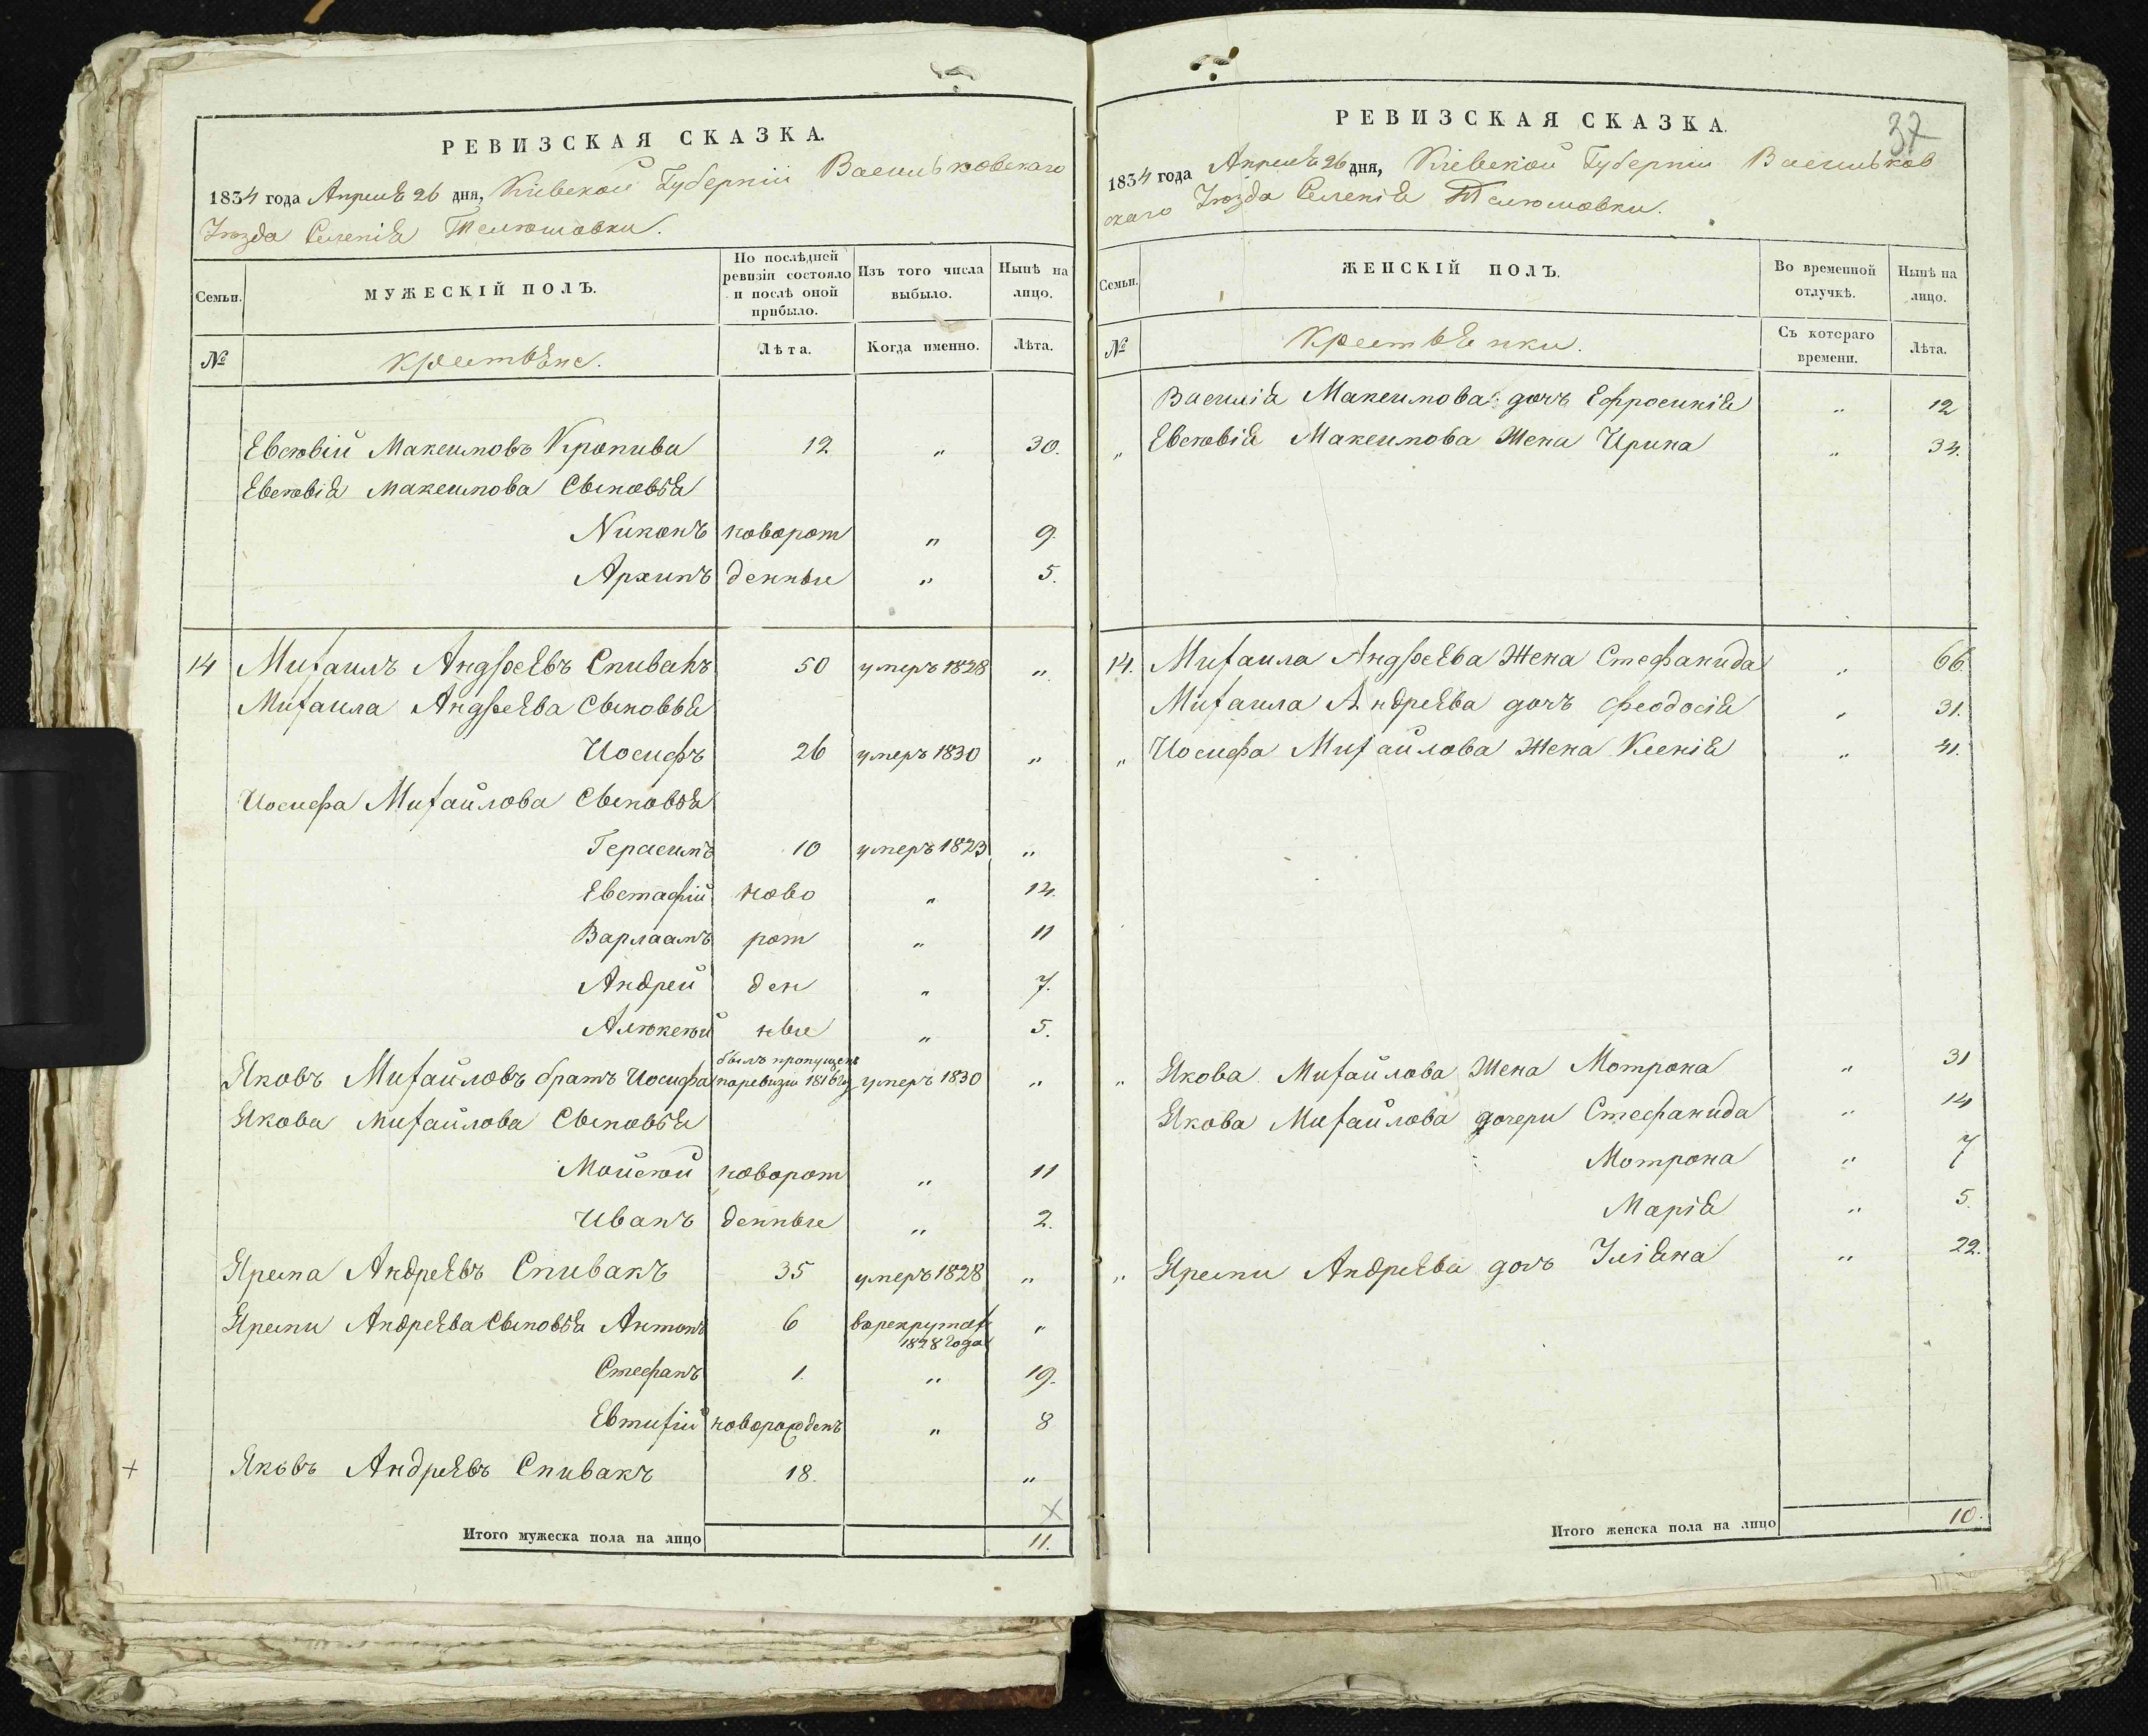 РЕВИЗСКАЯ СКАЗКА.
1834 года Апреля 26 дня, Кіевской Губерніи Васильковскаго
Уезда Селенія Телюшовки.
Семьи.
МУЖЕСКІЙ ПОЛЪ.
По послѣдней ревизіи состояло и послѣ оной прибыло.
Изъ того числа выбыло.
Нынѣ на лицо.
№
Крестьяне.
Лѣта.
Когда именно.
Лѣта.
Евсевій Максимовъ Кропива 12 „ 30.
Евсевія Максимова Сыновья
Никонъ новорож „ 9.
Архипъ денные „ 5.
14 Михаилъ Андреевъ Спивакъ 50 умеръ 1828 „
Михаила Андреева Сыновья
Иосифъ 26 умеръ 1830 „
Иосифа Михайлова Сыновья
Герасимъ 10 умеръ 1823 „
Евстафій ново „ 14.
Варлаамъ рож „ 11
Андрей ден „ 7.
Алексей ные „ 5.
Яковъ Михайловъ братъ Иосифа былъ пропущенъ по ревизіи 1816 го умеръ 1830 „
Якова Михайлова Сыновья
Мойсей новорож „ 11
Иванъ денные „ 2.
Ярема Андреевъ Спивакъ 35 умеръ 1828 „
Яремы Андреева Сыновья Антонъ 6 в рекрутах 1828 года „
Стефанъ 1. „ 19.
Евтихій новорожденъ „ 8
+ Яковъ Андреевъ Спивакъ 18. „
×
Итого мужеска пола на лицо 11.
37
РЕВИЗСКАЯ СКАЗКА.
1834 года Апреля 26 дня, Кіевской Губерніи Васильков
скаго Уезда Селенія Телюшовки.
Семьи.
ЖЕНСКІЙ ПОЛЪ.
Во временной отлучкѣ.
Нынѣ на лицо.
№
Крестьянки.
Съ котораго времени.
Лѣта.
Василія Максимова дочь Ефросинія „ 12
„ Евсевія Максимова Жена Ирина „ 34.
14. Михаила Андреева Жена Стефанида „ 66.
Михаила Андреева дочь Феодосія „ 31.
„ Иосифа Михайлова Жена Ксенія „ 41.
„ Якова Михайлова Жена Мотрона „ 31
Якова Михайлова дочери Стефанида „ 14
Мотрона „ 7
Марія „ 5.
„ Яремы Андреева дочь Уліяна „ 22.
Итого женска пола на лицо 10.